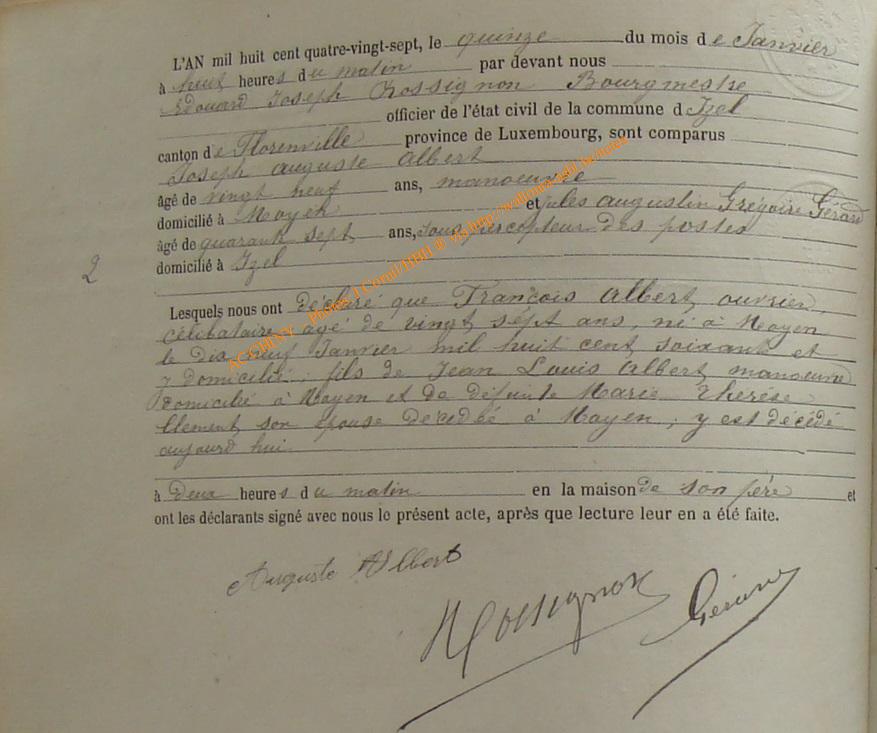 L'AN mil huit cent quatre-vingt-sept, le quinze du mois de Janvier
à huit heures du matin par devant nous
Edouard Joseph Rossignon Bourgmestre
officier de l'état civil de la commune d'Izel
canton de Florenville province de Luxembourg, sont comparus
Joseph auguste Albert
âgé de vingt neuf ans, manoeuvre
domicilié à Moyen et jules augustin Grégoire Gérard
âgé de quarante sept ans, sous percepteur des postes
domicilié à Izel
2
Lesquels nous ont déclaré que François Albert, ouvrier,
célibataire, agé de vingt sept ans, né à Moyen
le dix neuf Janvier mil huit cent soixante et
y domicilié, fils de Jean Louis Albert, manoeuvre
domicilié à Moyen et de défunte Marie Thérèse
Clement, son épouse décédée à Moyen, y est décédé
aujourd'hui
à deux heures du matin en la maison de son père et
ont les déclarants signé avec nous le présent acte, après que lecture leur en a été faite.
Auguste Albert
Rossignon
Gérard